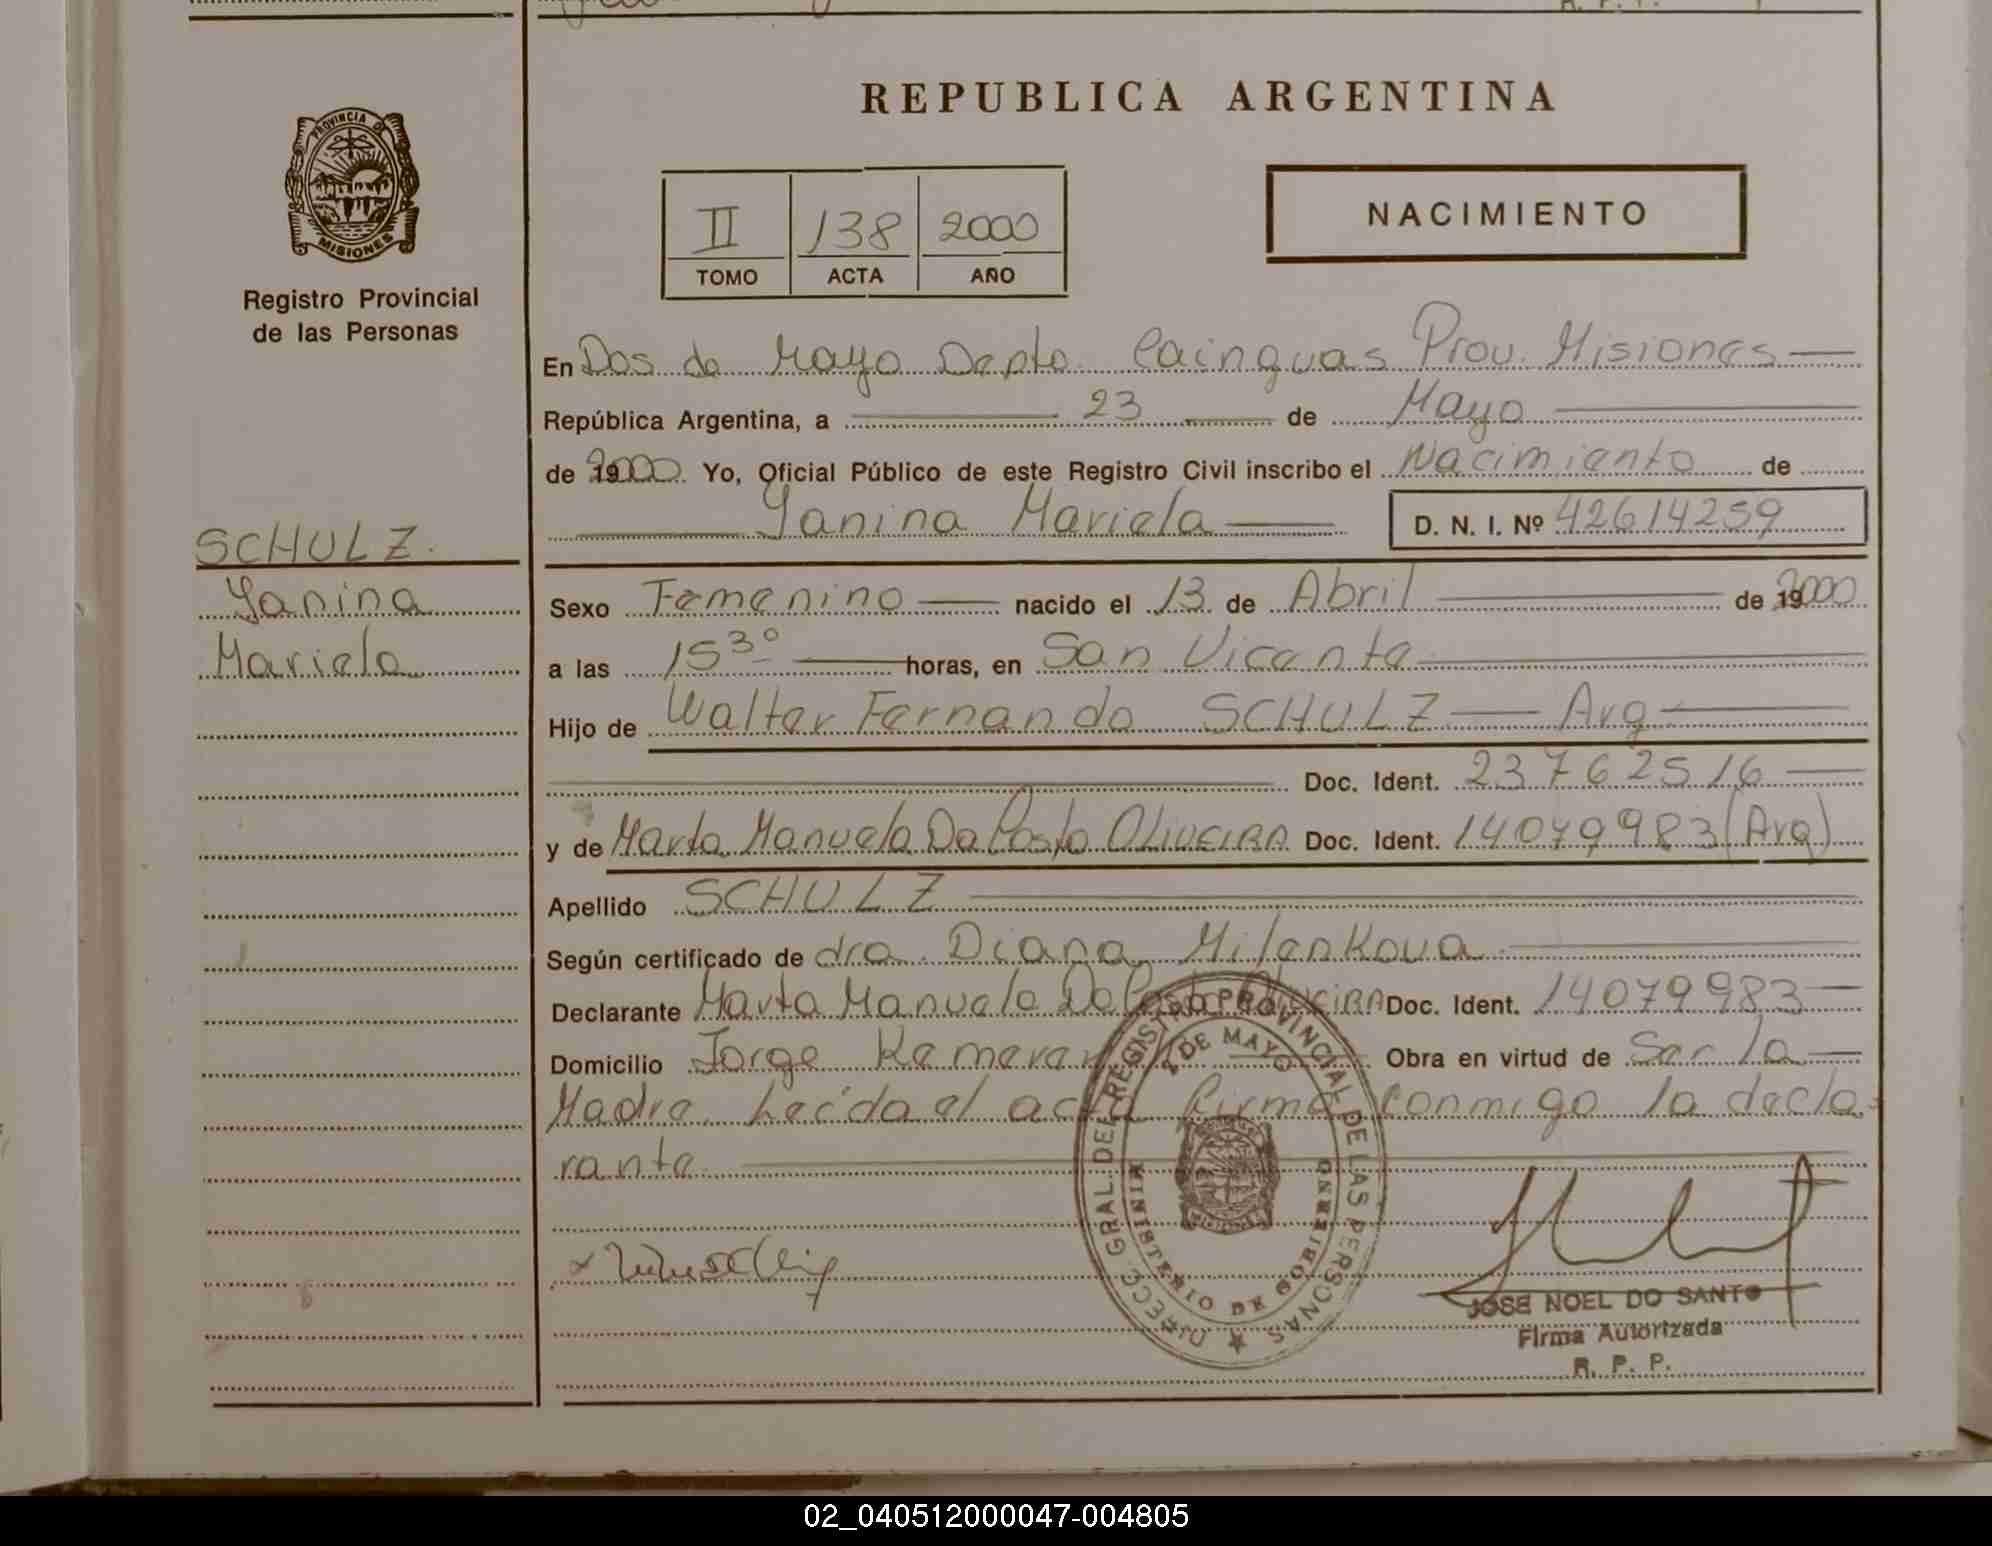 REPUBLICA ARGENTINA
PROVINCIA DE
MISIONES
Registro Provincial
de las Personas
II 138 2000
TOMO ACTA AÑO
NACIMIENTO
En Dos de Mayo Depto. Cainguas Prov. Misiones
República Argentina, a 23 de Mayo
de 192000 Yo, Oficial Público de este Registro Civil inscribo el Nacimiento de
Yanina Mariela D. N. I. Nº 42614259
SCHULZ.
Yanina
Mariela
Sexo Femenino nacido el 13 de Abril de 192000
a las 15 30 horas, en San Vicente
Hijo de Walter Fernando SCHULZ Arg
Doc. Ident. 23762516
y de Marta Manuela Da Costa OLIVEIRA Doc. Ident. 14079983 (Arg)
Apellido SCHULZ
Según certificado de dra. Diana Milenkova
Declarante Marta Manuela Da Costa OLIVEIRA Doc. Ident. 14079983
Domicilio Jorge Kemerer Obra en virtud de Ser la
Madre. Leída el acta firma conmigo la decla-
rante.
DIRECC GRAL. DEL REGISTRO PROVINCIAL DE LAS PERSONAS
2 DE MAYO
MINISTERIO DE GOBIERNO
MISIONES
JOSE NOEL DO SANTO
Firma Autorizada
R. P. P.
02_040512000047-004805